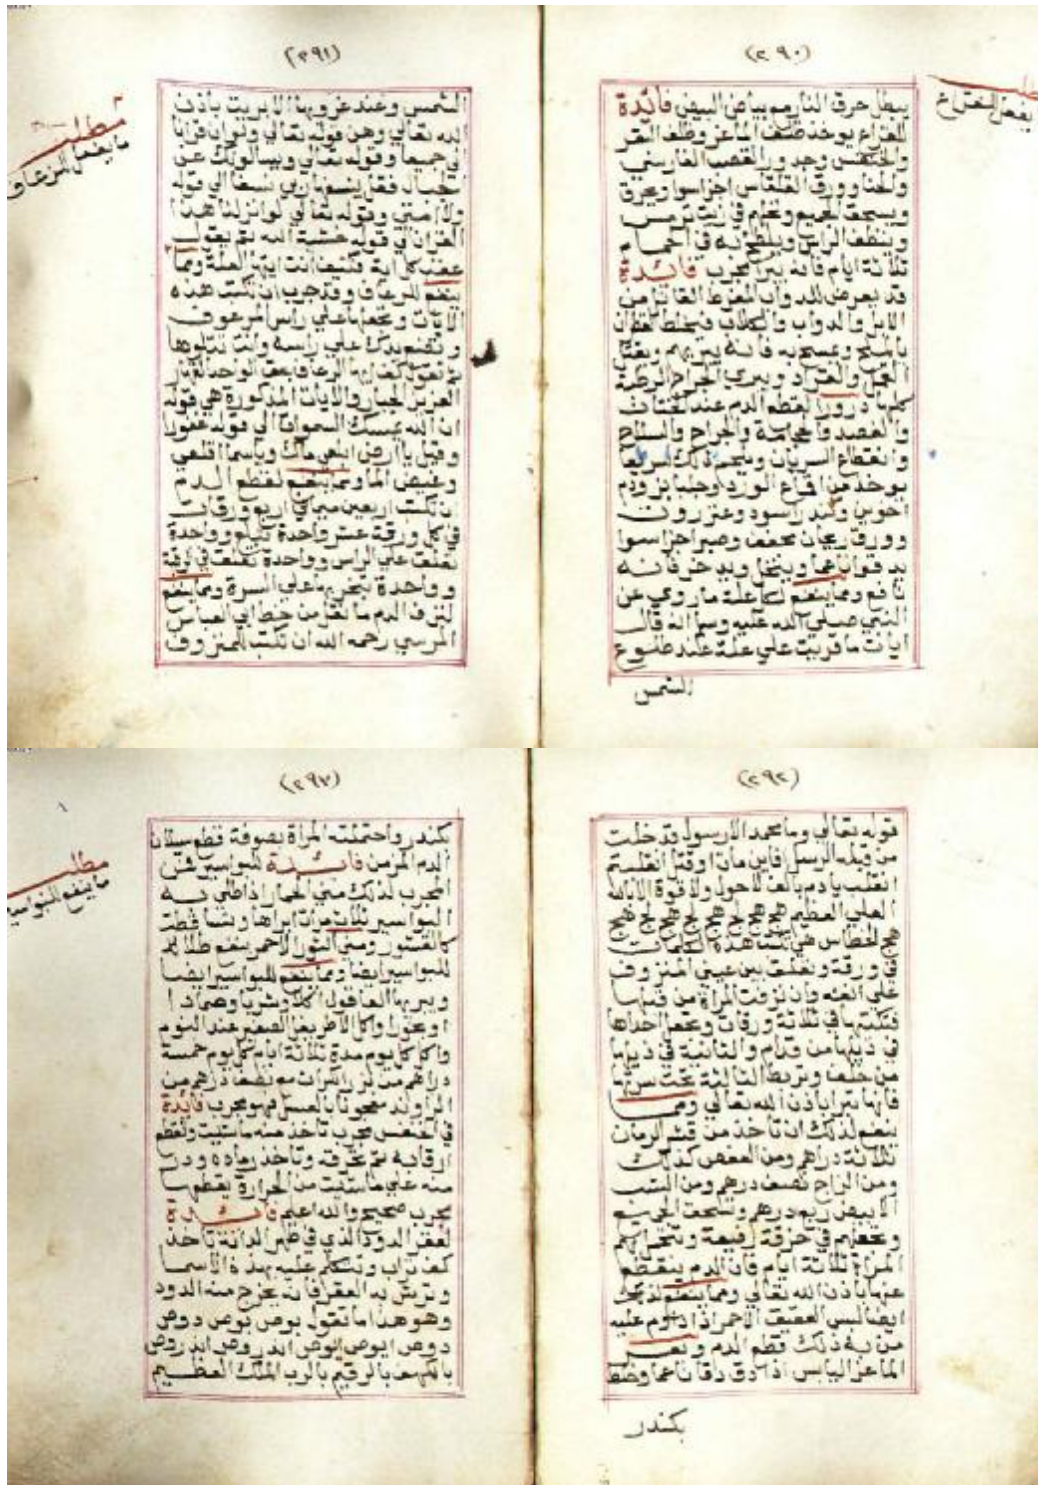 (٢٩٠)
يبطل حرق النار مع بياض البيض فائدة
للقراع يوخذ ظلف الماعز وظلف البقر
والخنفس وجدور القصب الفارسي
والحنا وورق القلقاس اجزا سوا ويحرق
ويسحق الجميع ويخلط في زيت ترمس
وينظف الراس ويلطخ به في الحمام
ثلاثة ايام فانه يبرا مجرب فائدة
قد يعرض للدواب المفرط من
الابل والدواب والكلاب فيخلط القطران
بالملح ويمسح به فانه يبريهم ويقتل
القمل والقراد ويبري الجراح الرطبة
كلها ذرورا لقطع الدم عند الختان
والفصد والحجامة والجراح والسلاح
وانقطاع الشريان ويلحم ذلك سريعا
يوخذ من اقماع الورد وجلنار ودم
اخوين وكندر اسود وعنزروت
وورق ريحان مجفف وصبر اجزا سوا
يدقوا ناعما وينخل ويدخر فانه
نافع ومما ينفع لكل علة ما روي عن
النبي صلي الله عليه وسلم انه قال
ايات ما قريت علي علة عند طلوع
الشمس
مطلب
يفعل للقراع
(٢٩١)
الشمس وعند غروبها الا بريت باذن
الله تعالي وهي قوله تعالي وتوبوا
الي جميعا وقوله تعالي ويسالونك عن
الجبال فقل ينسفها ربي نسفا الي قوله
ولا امتي وقوله تعالي لو انزلنا هذا
القران الي قوله خشية الله ثم يقول
عند كل اية فكيف انت ايتها العلة ومما
ينفع للرعاف وقد جرب ان تكتب هذه
الايات وتجعلها علي راس المرعوف
وتضع يدك علي راسه وانت تتلوها
ثم تقول كف ايها الرعاف بحق الواحد القهار
العزيز الجبار والايات المذكورة هي قوله
ان الله يمسك السموات الي قوله غفورا
وقيل يا ارض ابلعي ماك ويا سما اقلعي
وغيض الما ومما ينفع لقطع الدم
ان تكتب اربعين ميما في اربع ورقات
في كل ورقة عشر واحدة تبلع وواحدة
تعلق علي الراس وواحدة تعلق في
وواحدة تبخر بها علي السرة ومما ينفع
لنزف الدم ما نقل من خط ابي العباس
المرسي رحمه الله ان تكتب للمنزوف
مطلب
ما يفعل للرعاف
(٢٩٢)
قوله تعالي وما محمد الا رسول قد خلت
من قبله الرسل فاين مات او قتل انقلبتم
انقلب يا دم بالف لا حول ولا قوة الا بالله
العلي العظيم هج هج هج هج هج هج هج
هج تكتب هذه الكلمات
في ورقة وتعلق بين عيني المنزوف
علي انفه وان نزفت المراة من قبلها
فتكتبها في ثلاثة ورقات وتجعل احداها
في ذيلها من قدام والثانية في ذيلها
من خلف وتربط الثالثة تحت سرتها
فانها تبرا باذن الله تعالي ومما
ينفع لذلك ان تاخذ من قشر الرمان
ثلاثة دراهم ومن العفص كذلك
ومن الزاج نصف درهم ومن الشب
الابيض ربع درهم وتسحق الجميع
وتجعلهم في خرقة رفيعة وتتحمل بهم
المراة ثلاثة ايام فان الدم ينقطع
عنها باذن الله تعالي ومما ينفع لذلك
ايضا لبس العقيق الاحمر اذا داوم عليه
من به ذلك قطع الدم وبعر
الماعز اليابس اذا دق دقا ناعما وخلط
بكندر
(٢٩٣)
بكندر واحتملته المراة بصوفة قطع سيلان
الدم المزمن فائدة للبواسير فمن
المجرب لذلك مني الحمار اذا طلي به
البواسير ثلاث مرات ابراها وتساقطت
كالقشور ومني الثور الاحمر ينفع طلا به
للبواسير ايضا ومما ينفع للبواسير ايضا
ويبريها العاقول اكلا وشربا وضمادا
او بخورا واكل الاطريفل الصغير عند النوم
واكل كل يوم مدة ثلاثة ايام كل يوم خمسة
دراهم من بزر الكرات مع نصف درهم من
الراوند معجونا بالعسل فهو مجرب فائدة
في الخنفس مجرب تاخذ منه ما شيت وتقطع
الرقابه ثم تحرقه وتاخذ رماده وذر
منه علي ما شيت من الحرارة يقطعها
مجرب صحيح والله اعلم فائدة
لعقر الدود الذي في ظهر الدابة تاخذ
كف تراب وتتكلم عليه بهذه الاسما
وترش به العقر فانه يخرج منه الدود
وهو هذا ما تقول بوص بوص دوص
دوص ايوص ايوص اندروص اندروص
بالكهف بالرقيم بالرب الملك العظيم
مطلب
ما ينفع للبواسير